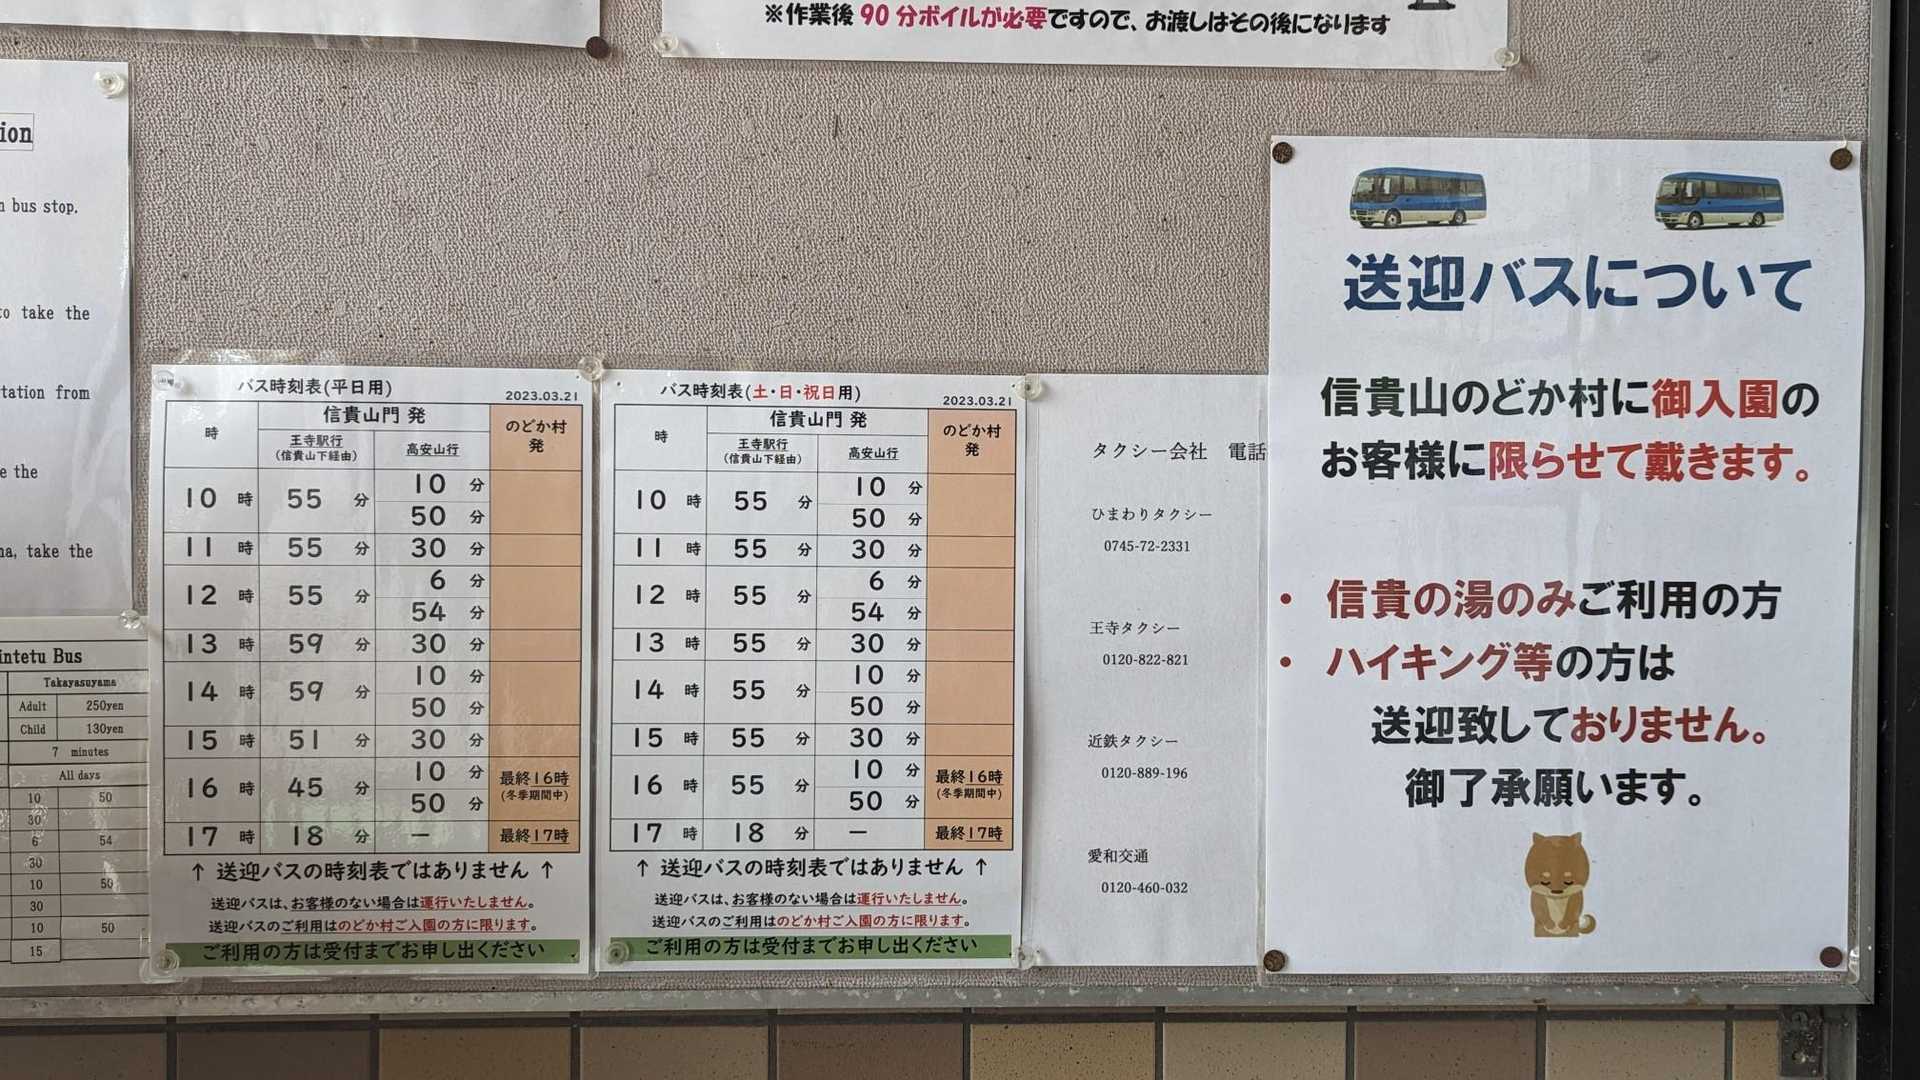 ※作業後 90 分ボイルが必要ですので、お渡しはその後になります
ion
bus stop.
to take the
tation from
e the
take the
intetu Bus
Takayasuyama
Adult 250yen
Child 130yen
7 minutes
All days
10 50
30
6 54
30
10 50
30
10 50
15
バス時刻表(平日用) 2023.03.21
時 信貴山門 発 のどか村発
王寺駅行 (信貴山下経由) 高安山行
10 時 55 分 10 分
50 分
11 時 55 分 30 分
12 時 55 分 6 分
54 分
13 時 59 分 30 分
14 時 59 分 10 分
50 分
15 時 51 分 30 分
16 時 45 分 10 分 最終16時
50 分 (冬季期間中)
17 時 18 分 ー 最終17時
↑ 送迎バスの時刻表ではありません ↑
送迎バスは、お客様のない場合は運行いたしません。
送迎バスのご利用はのどか村ご入園の方に限ります。
ご利用の方は受付までお申し出ください
バス時刻表(土・日・祝日用) 2023.03.21
時 信貴山門 発 のどか村発
王寺駅行 (信貴山下経由) 高安山行
10 時 55 分 10 分
50 分
11 時 55 分 30 分
12 時 55 分 6 分
54 分
13 時 55 分 30 分
14 時 55 分 10 分
50 分
15 時 55 分 30 分
16 時 55 分 10 分 最終16時
50 分 (冬季期間中)
17 時 18 分 ー 最終17時
↑ 送迎バスの時刻表ではありません ↑
送迎バスは、お客様のない場合は運行いたしません。
送迎バスのご利用はのどか村ご入園の方に限ります。
ご利用の方は受付までお申し出ください
タクシー会社 電話
ひまわりタクシー
0745-72-2331
王寺タクシー
0120-822-821
近鉄タクシー
0120-889-196
愛和交通
0120-460-032
送迎バスについて
信貴山のどか村に御入園の
お客様に限らせて戴きます。
・ 信貴の湯のみご利用の方
・ ハイキング等の方は
送迎致しておりません。
御了承願います。